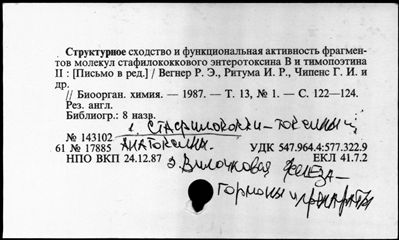 Структурное сходство и функциональная активность фрагмен-
тов молекул стафилококкового энтеротоксина В и тимопоэтина
II : [Письмо в ред.] / Вегнер Р. Э., Ритума И. Р., Чипенс Г. И. и
др.
// Биоорган. химия. — 1987. — Т. 13, № 1. — С. 122—124.
Рез. англ.
Библиогр.: 8 назв.
1. Стафилококки - токсины и
№ 143102 анатоксины.
61 № 17885 УДК 547.964.4:577.322.9
НПО ВКП 24.12.87 ЕКЛ 41.7.2
2. Вилочковая железа -
гормоны и препараты